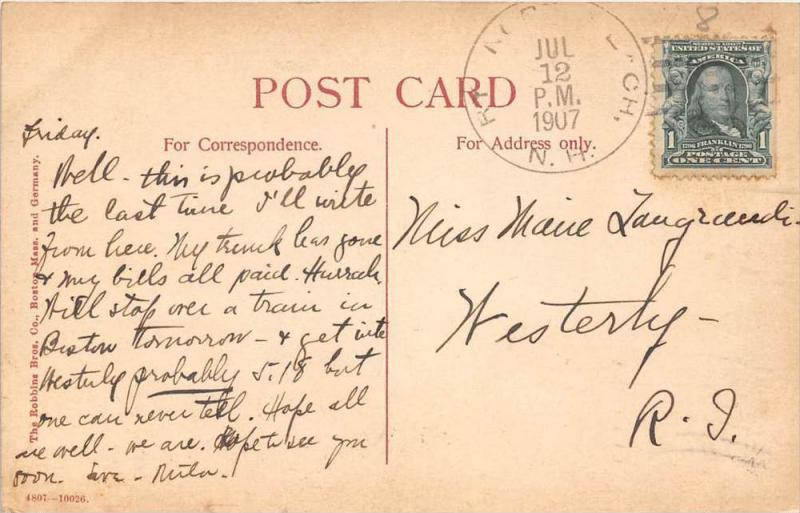 POST CARD
For Correspondence.
For Address only.
Friday.
Well - this is probably
the last time I'll write
from here. My trunk has gone
& my bills all paid. Hurrah.
Will stop over a train in
Boston tomorrow - & get into
Westerly probably 5.18 but
one can never tell. Hope all
are well - we are. Hope to see you
soon.
The Robbins Bros. Co., Boston, Mass. and Germany.
4807—10026.
JUL
12
P.M.
1907
N.H.
8
SERIES 1902
UNITED STATES OF
AMERICA
1706 FRANKLIN 1790
1 POSTAGE 1
ONE CENT
Miss Marie
Westerly -
R.I.